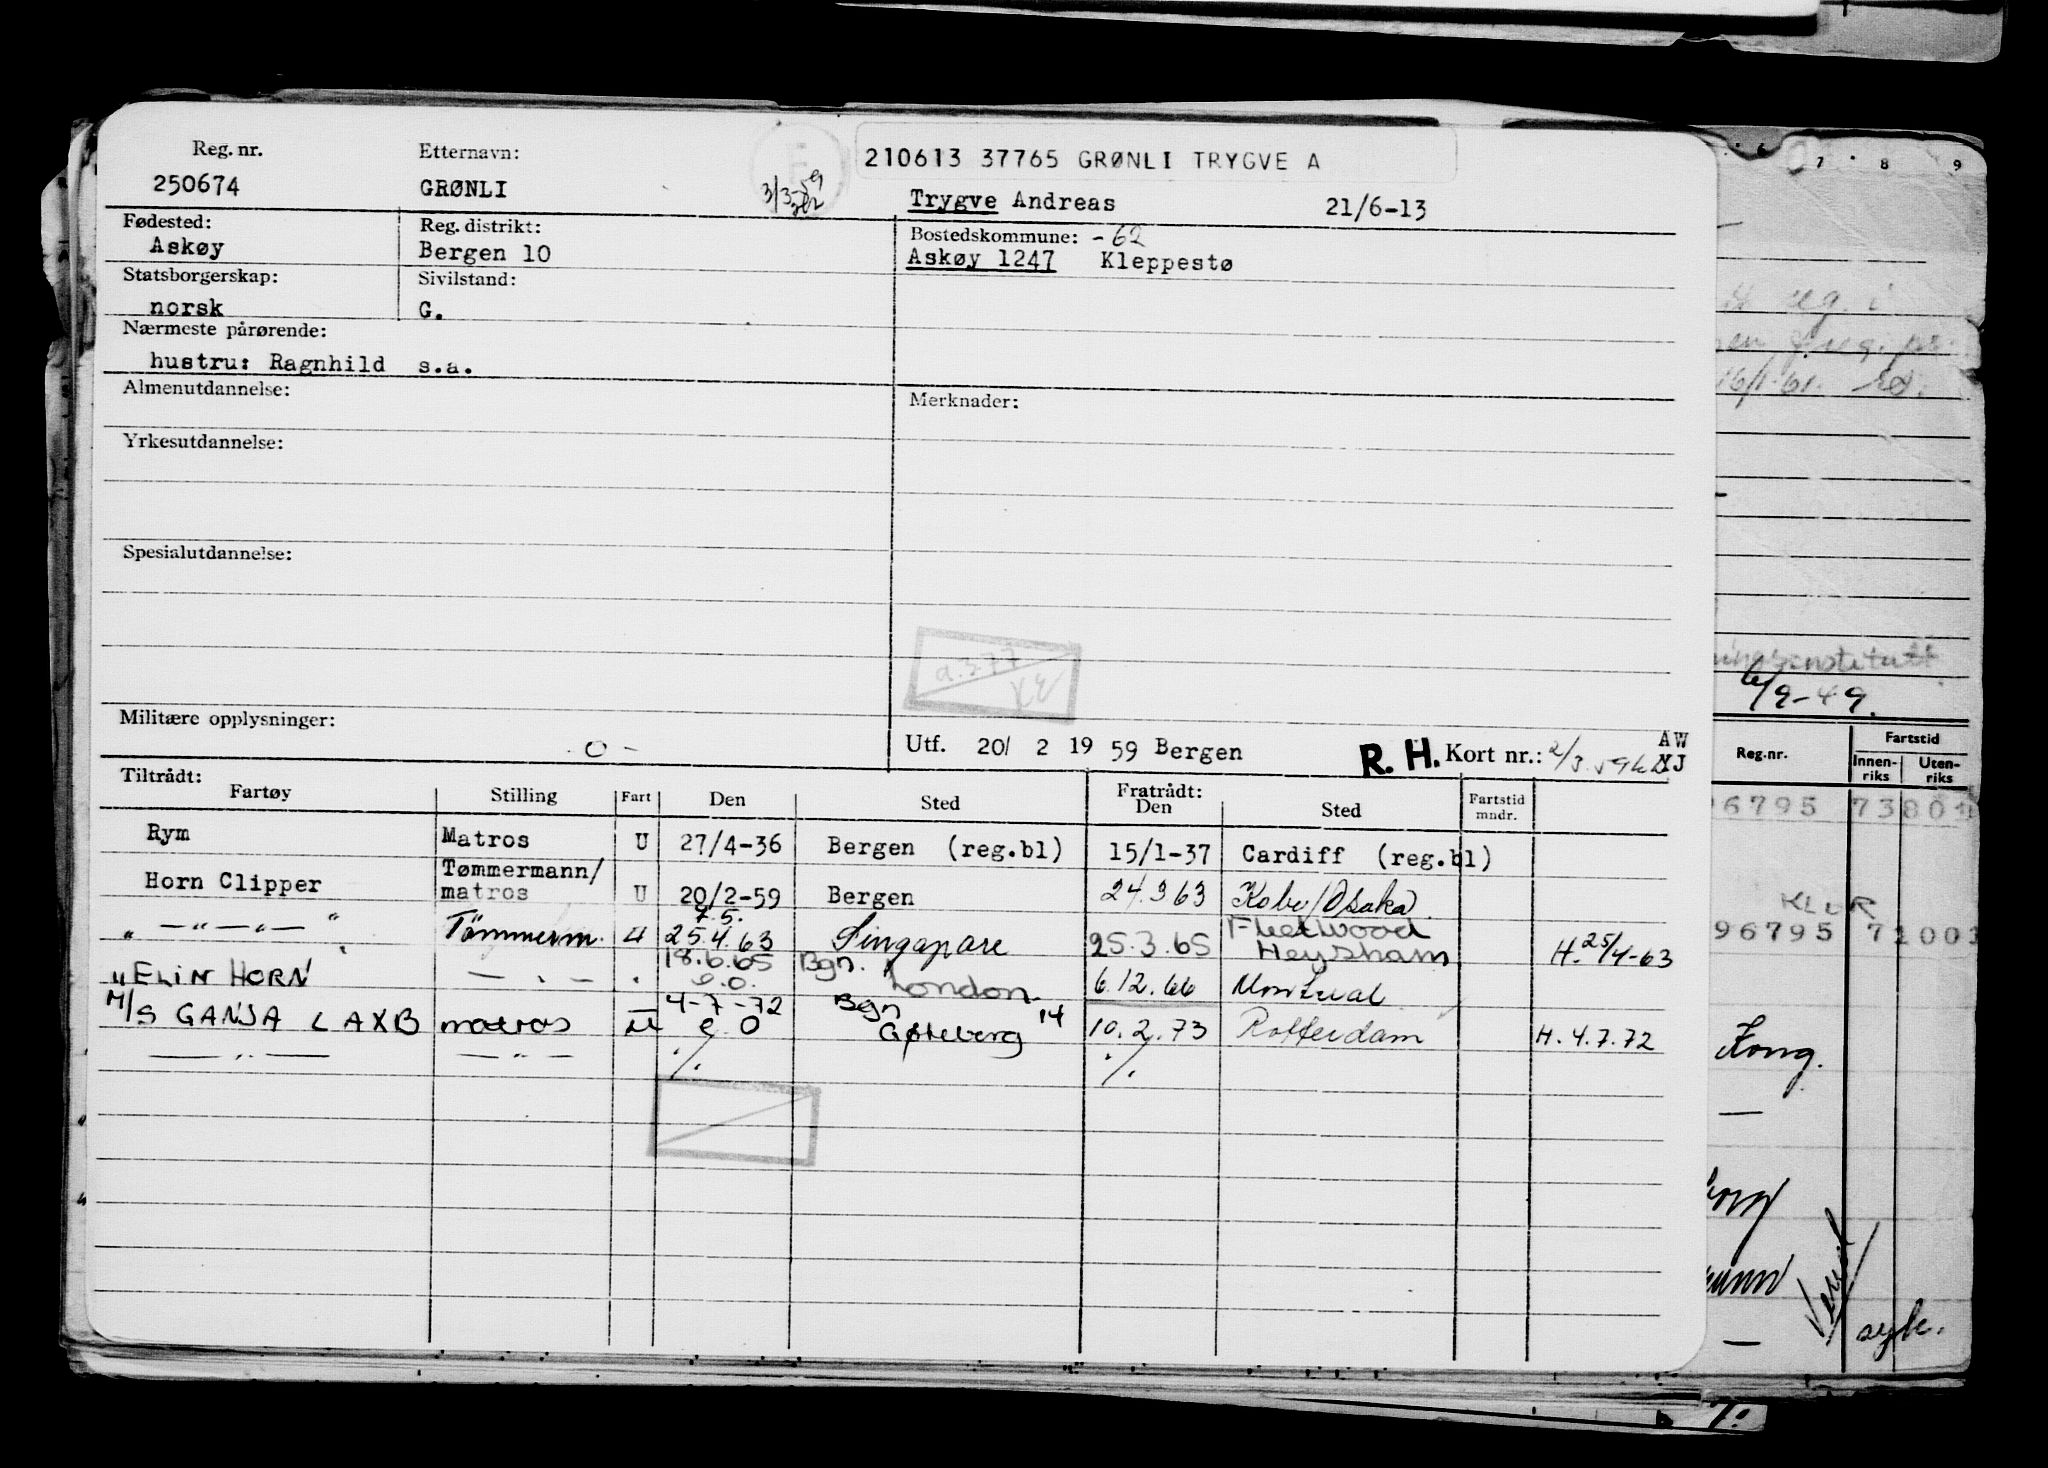 Reg. nr. Etternavn: 210613 37765 GRØNLI TRYGVE A
250674 GRØNLI 3/3-59 Trygve Andreas 21/6-13
Fødested: Reg. distrikt: Bostedskommune: -62
Askøy Bergen 10 Askøy 1247 Kleppestø
Statsborgerskap: Sivilstand:
norsk G.
Nærmeste pårørende:
hustru: Ragnhild s.a.
Almenutdannelse: Merknader:
Yrkesutdannelse:
Spesialutdannelse:
a.377
Militære opplysninger: -0- Utf. 20/ 2 19 59 Bergen R. H. Kort nr.: 2/3.59 AW
Tiltrådt: Fratrådt:
Fartøy Stilling Fart Den Sted Den Sted Fartstid mndr.
Rym Matros U 27/4-36 Bergen (reg.bl) 15/1-37 Cardiff (reg.bl)
Horn Clipper Tømmermann/ matros U 20/2-59 Bergen 24.3 63 Kobe/Osaka
7.5.
" —"—"— " Tømmerm. U 25.4.63 Singapore 25.3.65 Fleetwood Heysham H. 25/4-63
"ELIN HORN — " — " 18.6.65 e.o. Bgn. London 6.12.66 Montreal
M/S GANJA LAXB matros U 4-7-72 e O Bgn Gøteborg 14 10.2.73 Rotterdam H. 4.7.72
— " — — " — ./. ./.
6 7 8 9
reg. i
16/1-61.
6/9-49.
Reg.nr. Fartstid
Innen- riks Uten- riks
96795 73801
96795 71003
Kong.
syk.